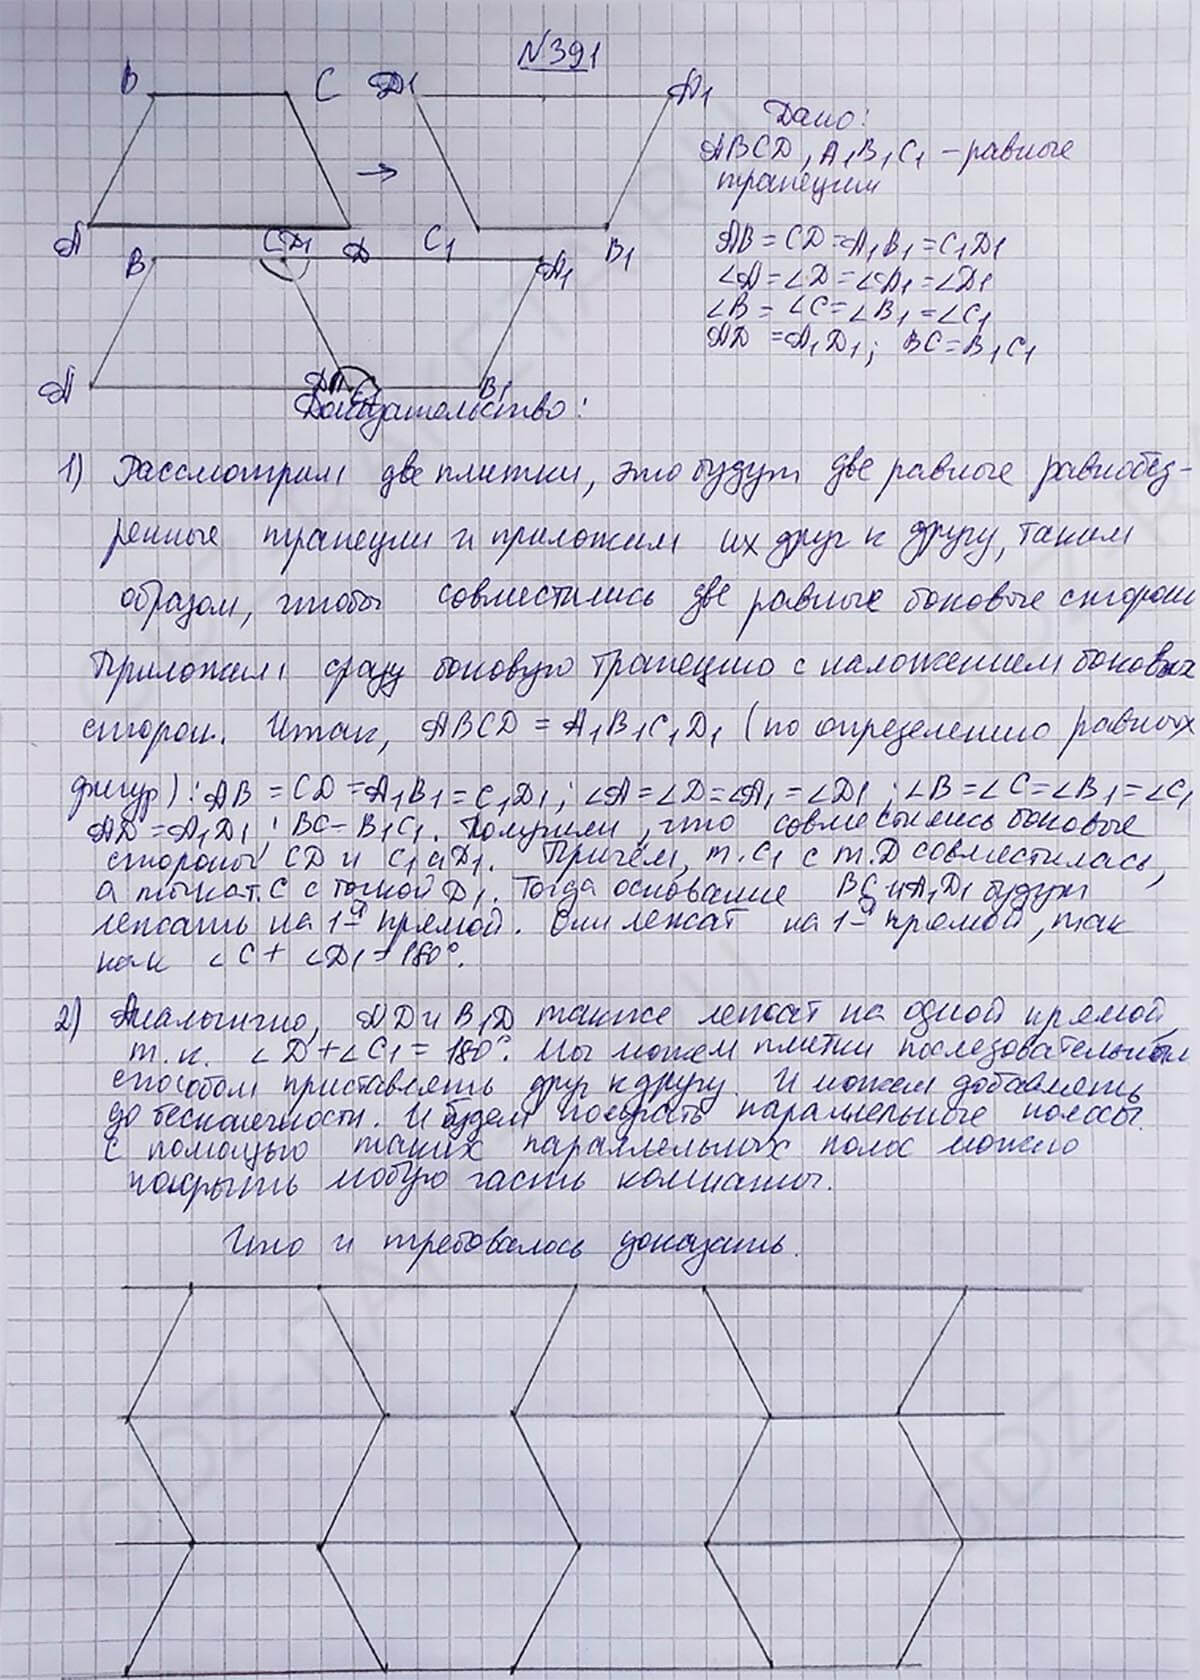 №391
B C D1 A1
Дано:
ABCD, A1B1C1 – равные
трапеции
A D C1 B1
AB = CD = A1B1 = C1D1
B C D1 A1
∠A = ∠D = ∠A1 = ∠D1
∠B = ∠C = ∠B1 = ∠C1
AD = A1D1; BC = B1C1
A D C1 B1
Доказательство:
1) Рассмотрим две плитки, это будут две равные равнобед-
ренные трапеции и приложим их друг к другу, таким
образом, чтобы совместились две равные боковые стороны
Приложим сразу боковую трапецию с наложением боковых
сторон. Итак, ABCD = A1B1C1D1 (по определению равных
фигур): AB = CD = A1B1 = C1D1; ∠A = ∠D = ∠A1 = ∠D1; ∠B = ∠C = ∠B1 = ∠C1
AD = A1D1; BC = B1C1. Получили, что совместились боковые
стороны CD и C1D1. Причём, т. C1 с т. D совместилась,
а точка т. C с точкой D1. Тогда основание BC и A1D1 будут
лежать на 1-й прямой. Они лежат на 1-й прямой, так
как ∠C + ∠D1 = 180°.
2) Аналогично, AD и B1D также лежат на одной прямой,
т.к. ∠D + ∠C1 = 180°. Мы можем плитки последовательным
способом приставлять друг к другу. И можем добавлять
до бесконечности. И будем получать параллельные полосы.
С помощью таких параллельных полос можно
покрыть любую часть комнаты.
Что и требовалось доказать.